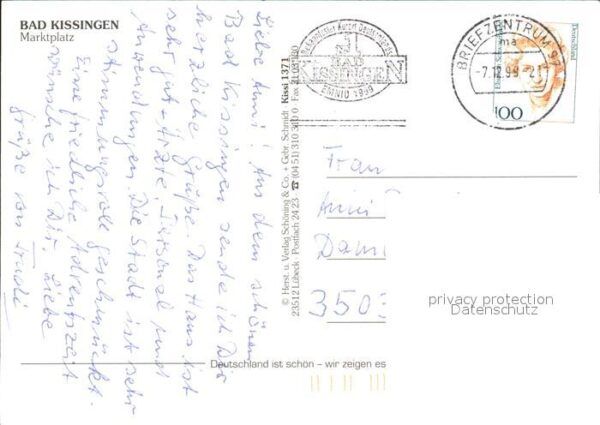 BAD KISSINGEN
Marktplatz
Liebe Anni! Aus dem schönen
Bad Kissingen sende ich Dir
herzliche Grüße. Das Haus ist
sehr gut - Ärzte, Personal und
Anwendungen. Die Stadt ist sehr
stimmungsvoll geschmückt.
Eine friedliche Adventszeit
wünsche ich Dir, liebe
Grüße von Trudi
© Herst. u. Verlag Schöning & Co. + Gebr. Schmidt Kissi 1371
23512 Lübeck · Postfach 24 23 ☎ (04 51) 310 310 0 Fax
BAD
KISSINGEN
EMNID 1999
BRIEFZENTRUM 97
ma
-7.12.99-21
Deutschland
100
Frau
Anni
350
privacy protection
Datenschutz
Deutschland ist schön – wir zeigen es